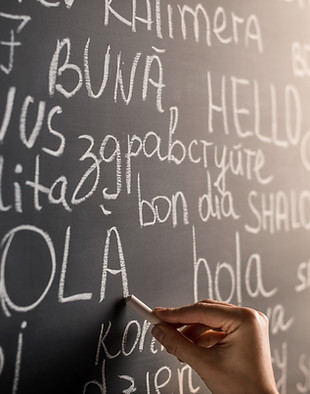 Kalimera
BUNĂ HELLO
здравствуйте
bon dia SHALO
OLÀ hola
kon
dzień